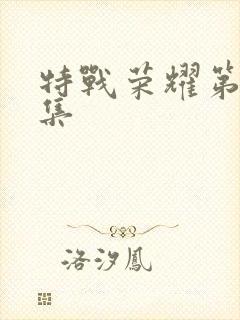 特戰荣耀第
集
洛汐鳳